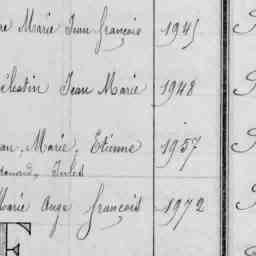 re Marie Jean françois 1945
élestin Jean Marie 1948
ean, Marie, Etienne 1957
rmand, Jules
Marie Ange françois 1972
E